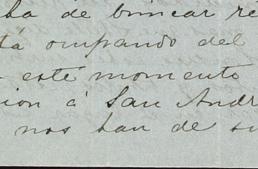 ha de brincar re
tá ocupando del
este momento
ion á San Andr
nos han de